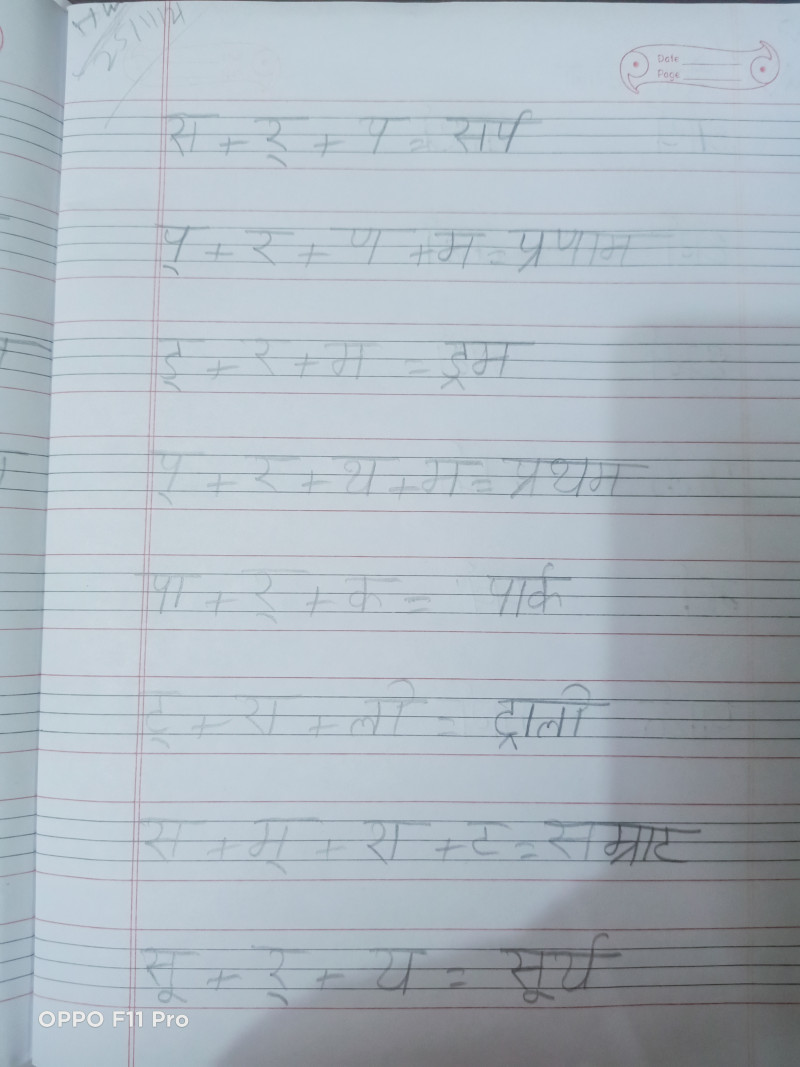 HW
25/11/21
Date
Page
स + र् + प = सर्प
प् + र + ण + म = प्रणाम
ड् + र + म = ड्रम
प् + र + थ + म = प्रथम
पा + र् + क = पार्क
ट् + रा + ली = ट्राली
स + म् + रा + ट = सम्राट
सू + र् + य = सूर्य
OPPO F11 Pro